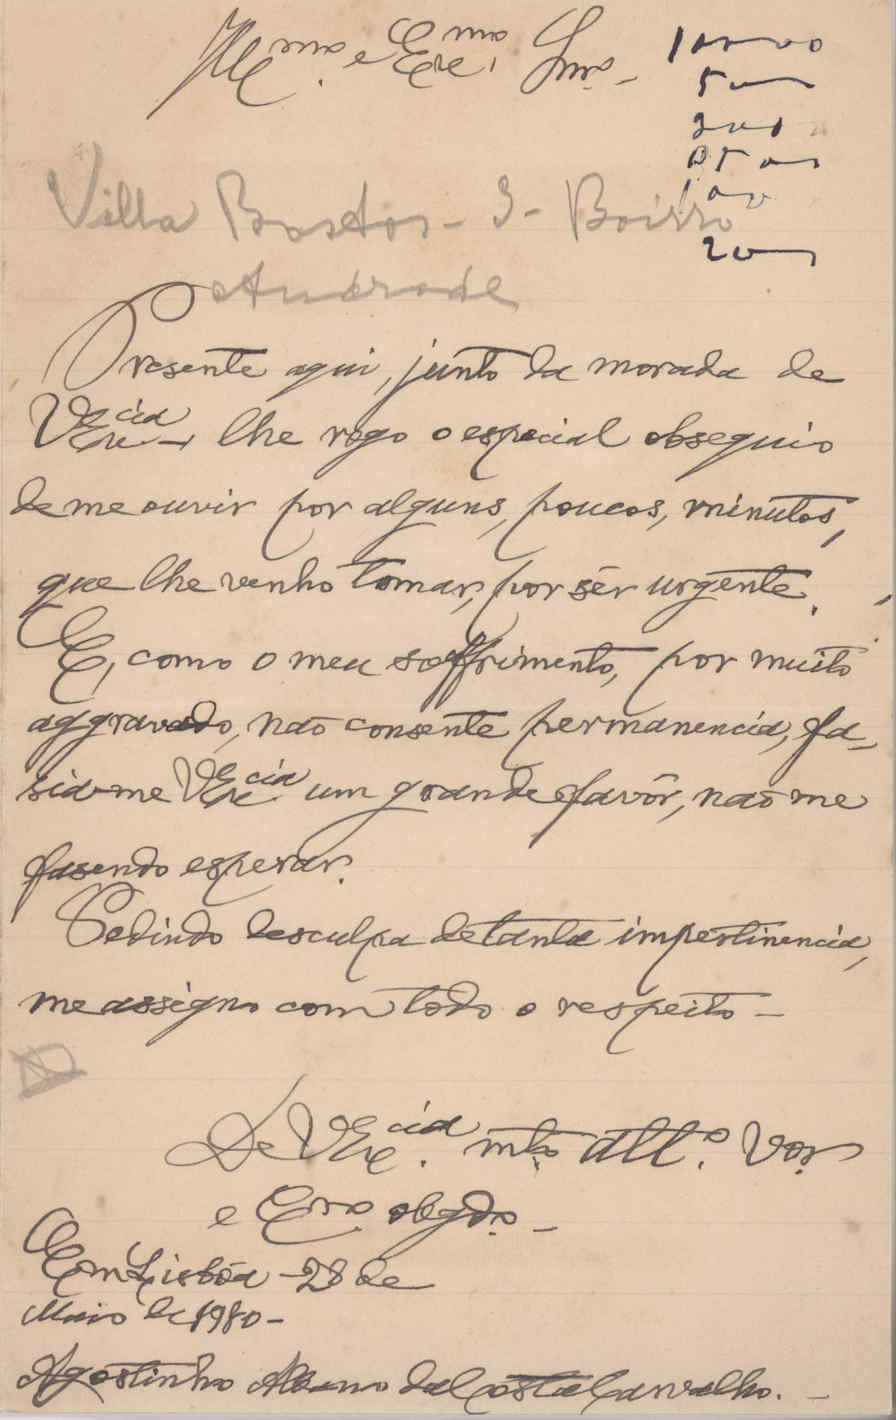 Illmo. e Exmo. Snr. -
10000
500
200
1500
100
200
Villa Bastos - 3 - Bairro
Andrade
Presente aqui, junto da morada de
VExcia - lhe rogo o especial obsequio
de me ouvir por alguns, poucos, minutos,
que lhe venho tomar, por sêr urgente.
E, como o meu soffrimento, por muito
aggravado, não consente permanencia, fa-
sia-me VExcia um grande favôr, não me
fasendo esperar.
Pedindo desculpa de tanta impertinencia,
me assigno com todo o respeito -
De VExcia. mto attº. Vor.
e Cro obgdo. -
Em Lisbôa - 28 de
Maio de 1910 -
Agostinho Albano da Costa Carvalho. -